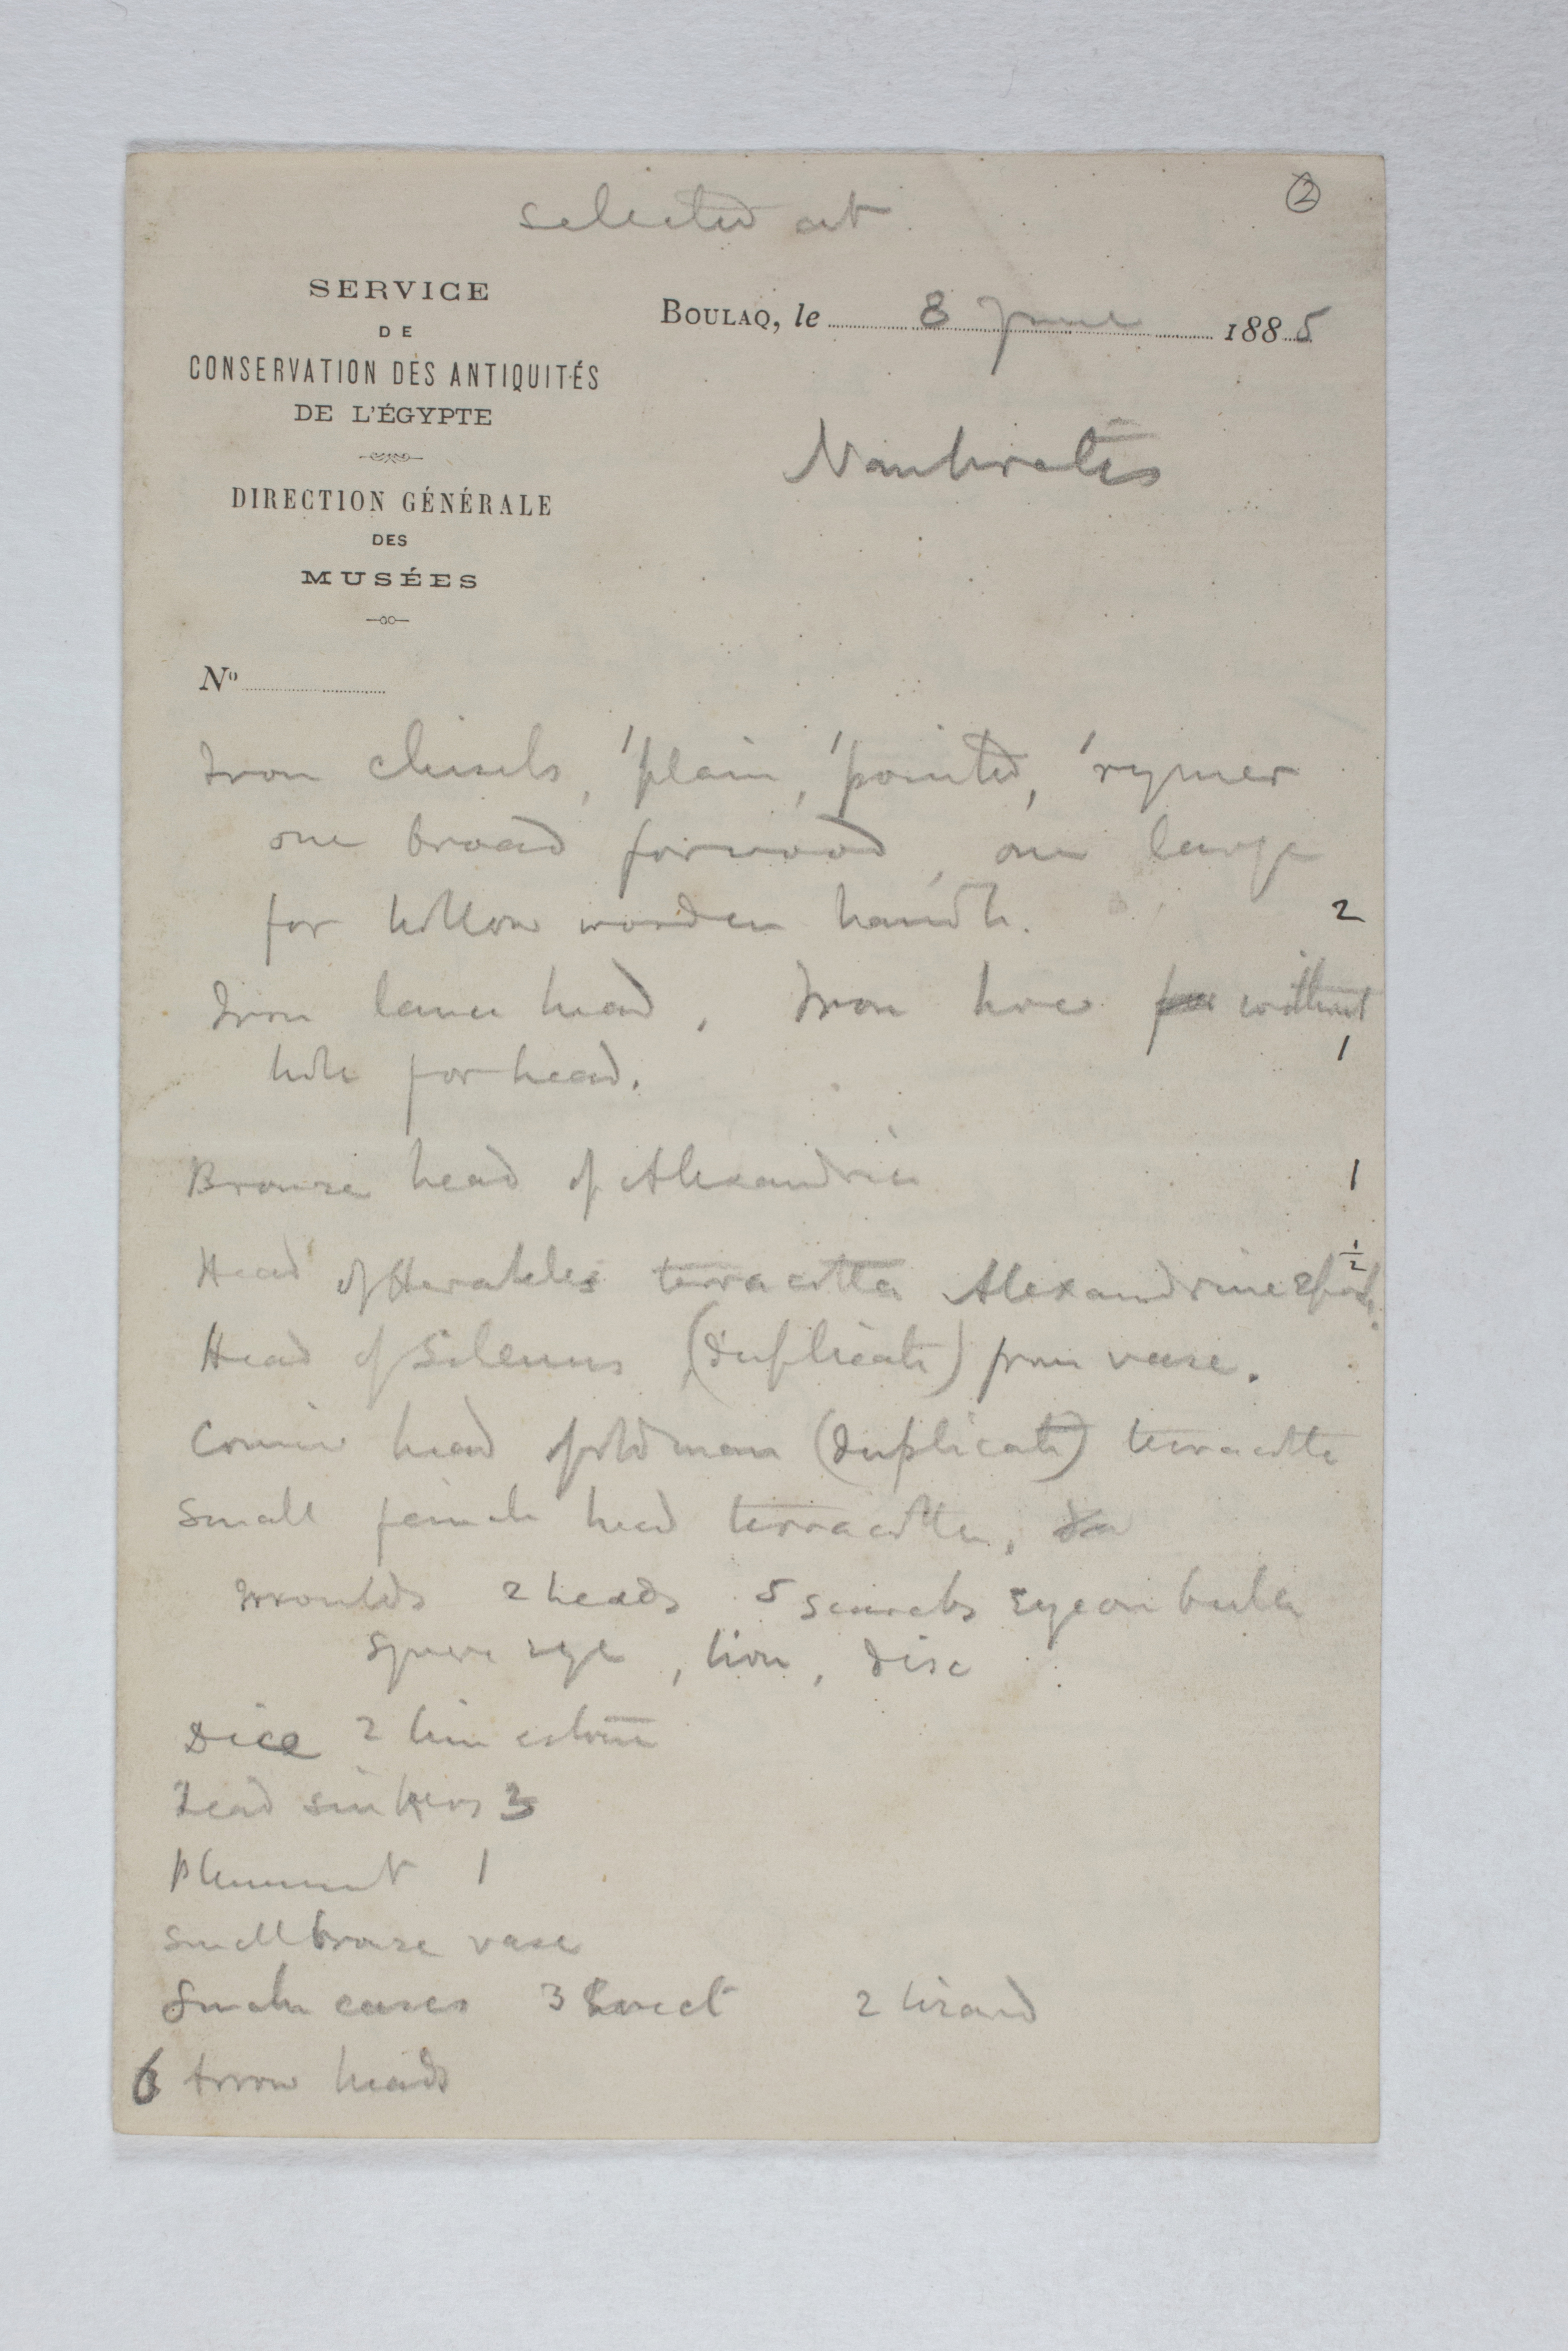 selected at
②
SERVICE
DE
CONSERVATION DES ANTIQUITÉS
DE L'ÉGYPTE
DIRECTION GÉNÉRALE
DES
MUSÉES
Nº
BOULAQ, le 8 June 1885
Naukratis
Iron chisels, 1 plain, 1 pointed, 1 rymer
one broad for wood, one large
for hollow wooden handle. 2
Iron lance head, Iron hoe for without
hole for head. 1
Bronze head of Alexandria 1
Head of Herakles terracotta Alexandrine epoch. 1/2
Head of Silenus (duplicate) from vase.
Comic head of old man (duplicate) terracotta
Small female head terracotta, do
Moulds 2 heads 5 scarabs Eye on
Square eye, lion, disc
Dice 2 limestone
Lead sinkers 3
Plummet 1
Small bronze vase
Snake cases 3 2 lizard
6 Arrow heads